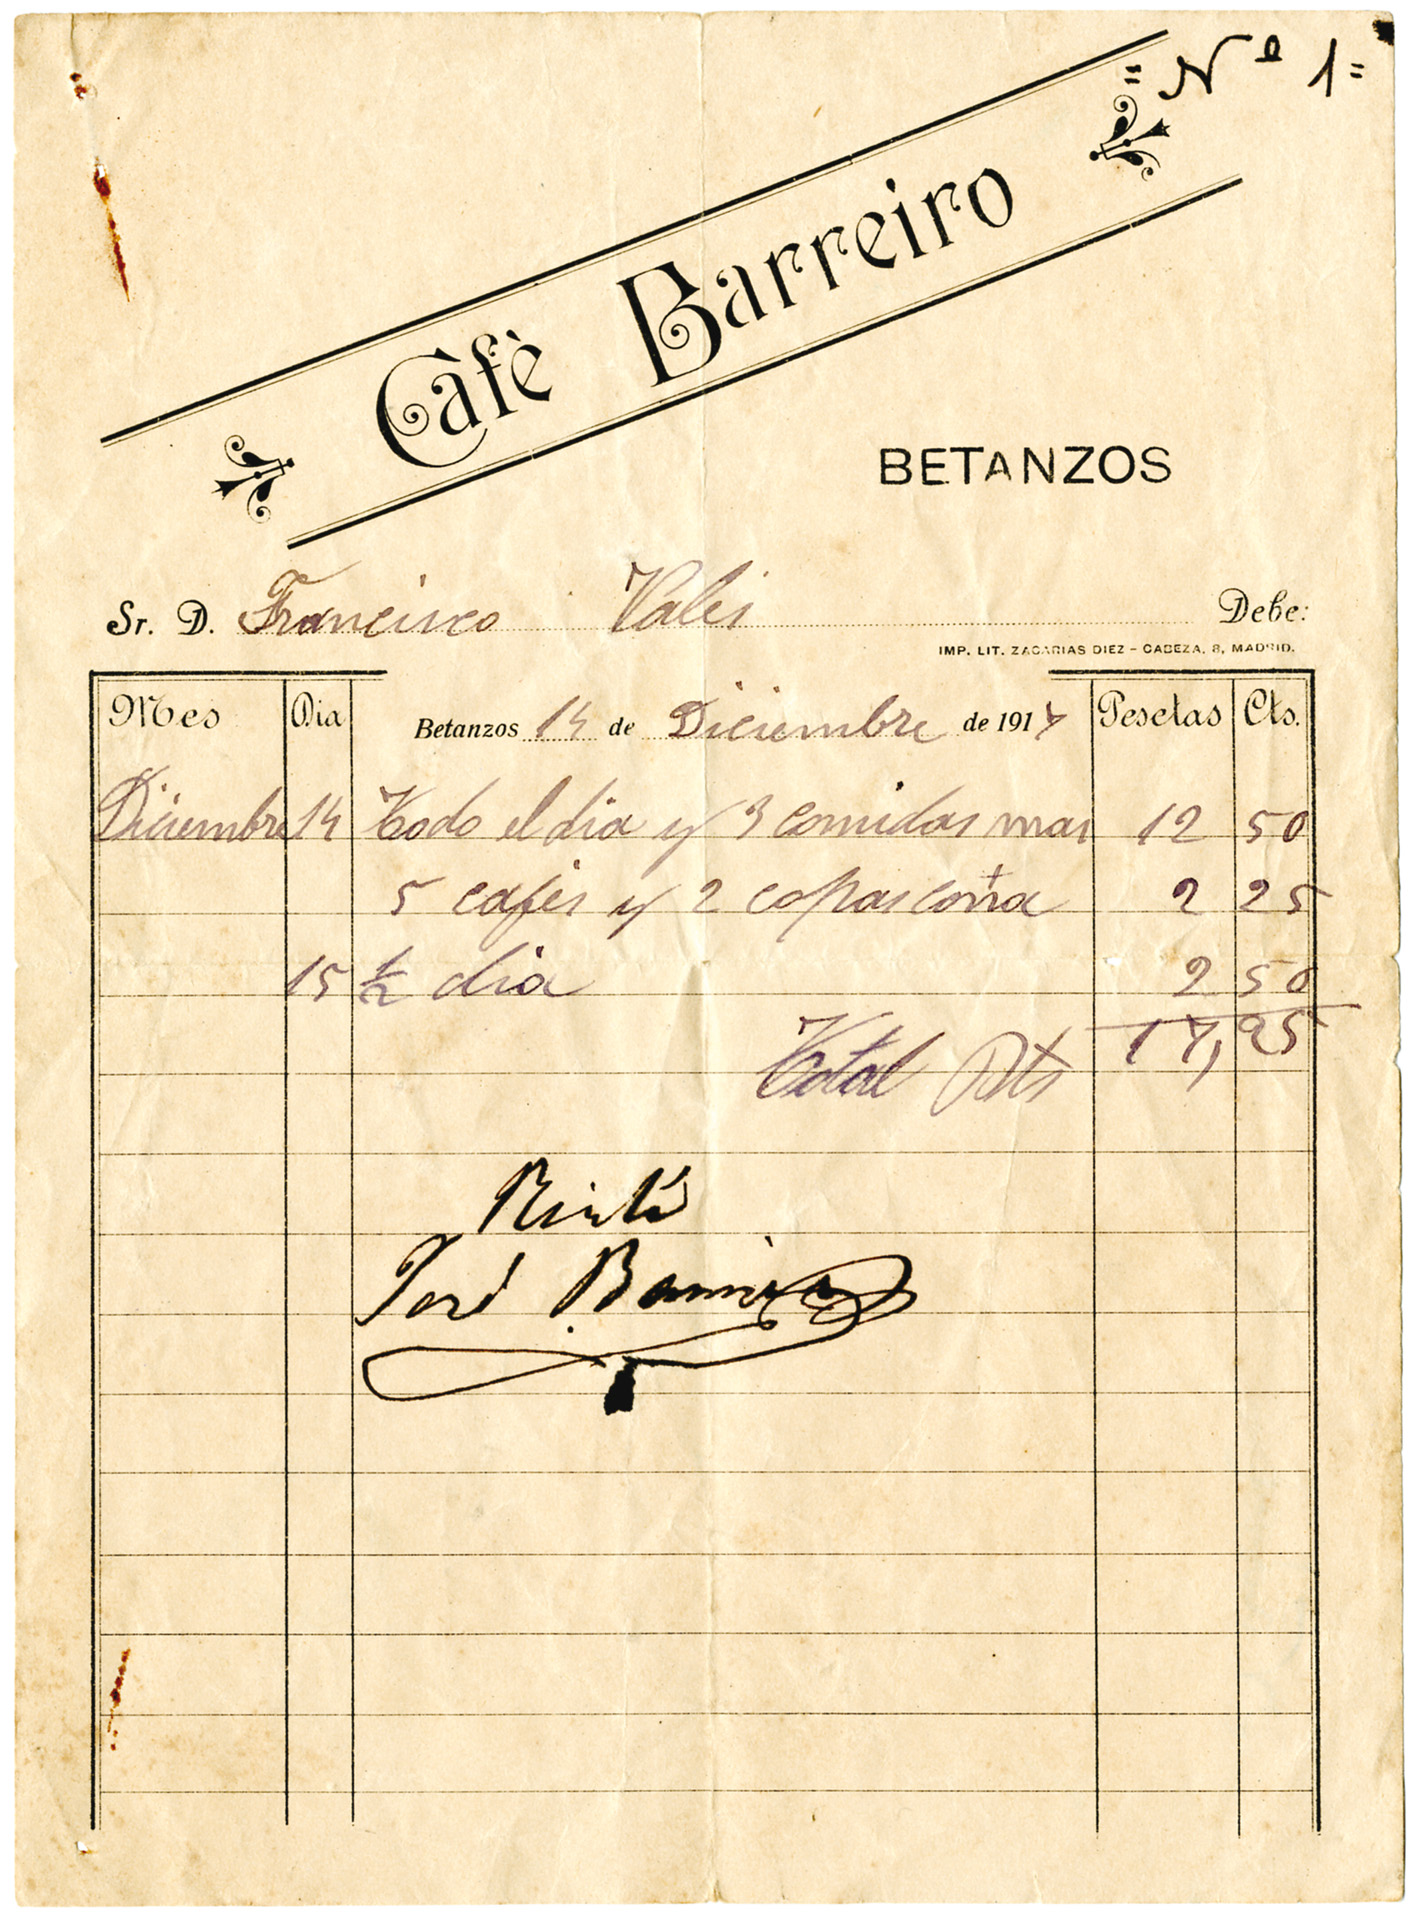 = Nº 1 =
Cafè Barreiro
BETANZOS
Sr. D. Francisco Vales Debe:
IMP. LIT. ZACARIAS DIEZ - CABEZA, 8, MADRID.
Mes Dia Betanzos 14 de Diciembre de 1917 Pesetas Cts.
Diciembre 14 Todo el dia y 3 comidas mas 12 50
5 cafes y 2 copas coña 2 25
15 ½ dia 2 50
Total Pts 17,25
Recibí
José Barreiro